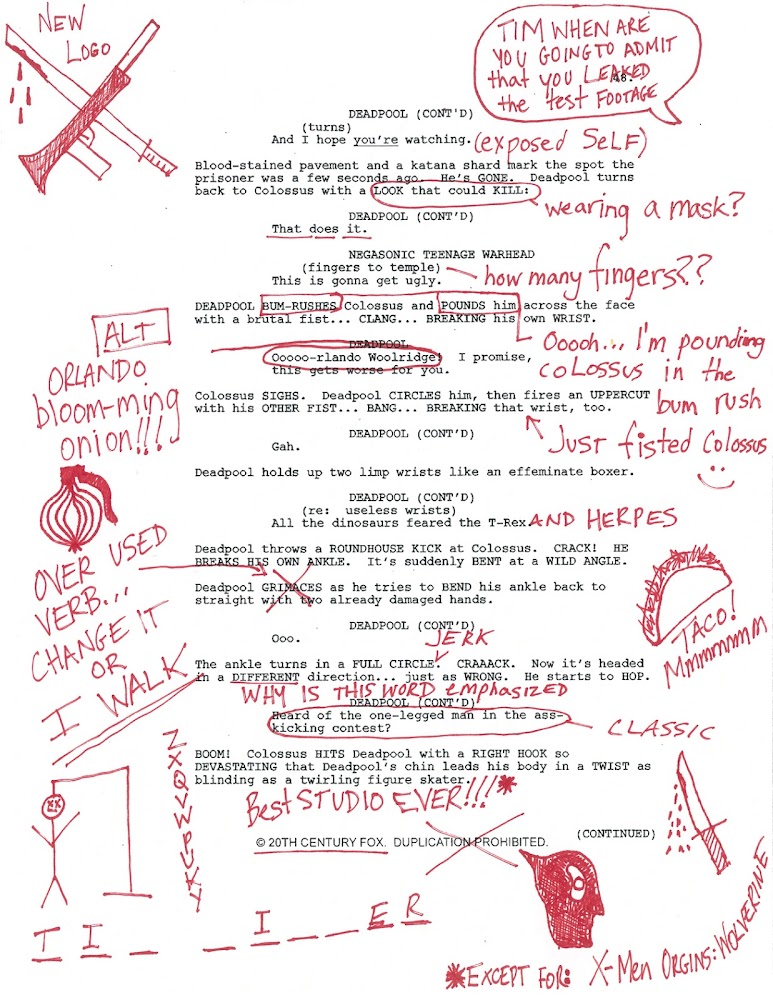 NEW
LOGO
TIM WHEN ARE
YOU GOING TO ADMIT
that you LEAKED
the test FOOTAGE
48.
DEADPOOL (CONT'D)
(turns)
And I hope you're watching. (exposed SeLF)
Blood-stained pavement and a katana shard mark the spot the
prisoner was a few seconds ago. He's GONE. Deadpool turns
back to Colossus with a LOOK that could KILL:
wearing a mask?
DEADPOOL (CONT'D)
That does it.
NEGASONIC TEENAGE WARHEAD
(fingers to temple)
how many fingers??
This is gonna get ugly.
DEADPOOL BUM-RUSHES Colossus and POUNDS him across the face
with a brutal fist... CLANG... BREAKING his own WRIST.
ALT
ORLANDO
bloom-ming
onion!!!
DEADPOOL
Ooooo-rlando Woolridge! I promise,
this gets worse for you.
Ooooh... I'm pounding
COLOSSUS in the
bum rush
Colossus SIGHS. Deadpool CIRCLES him, then fires an UPPERCUT
with his OTHER FIST... BANG... BREAKING that wrist, too.
Just fisted Colossus
DEADPOOL (CONT'D)
Gah.
Deadpool holds up two limp wrists like an effeminate boxer.
DEADPOOL (CONT'D)
(re: useless wrists)
All the dinosaurs feared the T-Rex. AND HERPES
OVER USED
VERB...
CHANGE IT
OR
I WALK
Deadpool throws a ROUNDHOUSE KICK at Colossus. CRACK! HE
BREAKS HIS OWN ANKLE. It's suddenly BENT at a WILD ANGLE.
Deadpool GRIMACES as he tries to BEND his ankle back to
straight with two already damaged hands.
TACO!
Mmmmmmm
DEADPOOL (CONT'D)
Ooo.
JERK
The ankle turns in a FULL CIRCLE. CRAAACK. Now it's headed
in a DIFFERENT direction... just as WRONG. He starts to HOP.
WHY IS THIS WORD emphasized
DEADPOOL (CONT'D)
Heard of the one-legged man in the ass-
kicking contest?
CLASSIC
BOOM! Colossus HITS Deadpool with a RIGHT HOOK so
DEVASTATING that Deadpool's chin leads his body in a TWIST as
blinding as a twirling figure skater.
Best STUDIO EVER!!!*
(CONTINUED)
© 20TH CENTURY FOX. DUPLICATION PROHIBITED.
T I _ _ _ I _ _ E R
*EXCEPT FOR: X-Men ORGINS: WOLVERINE